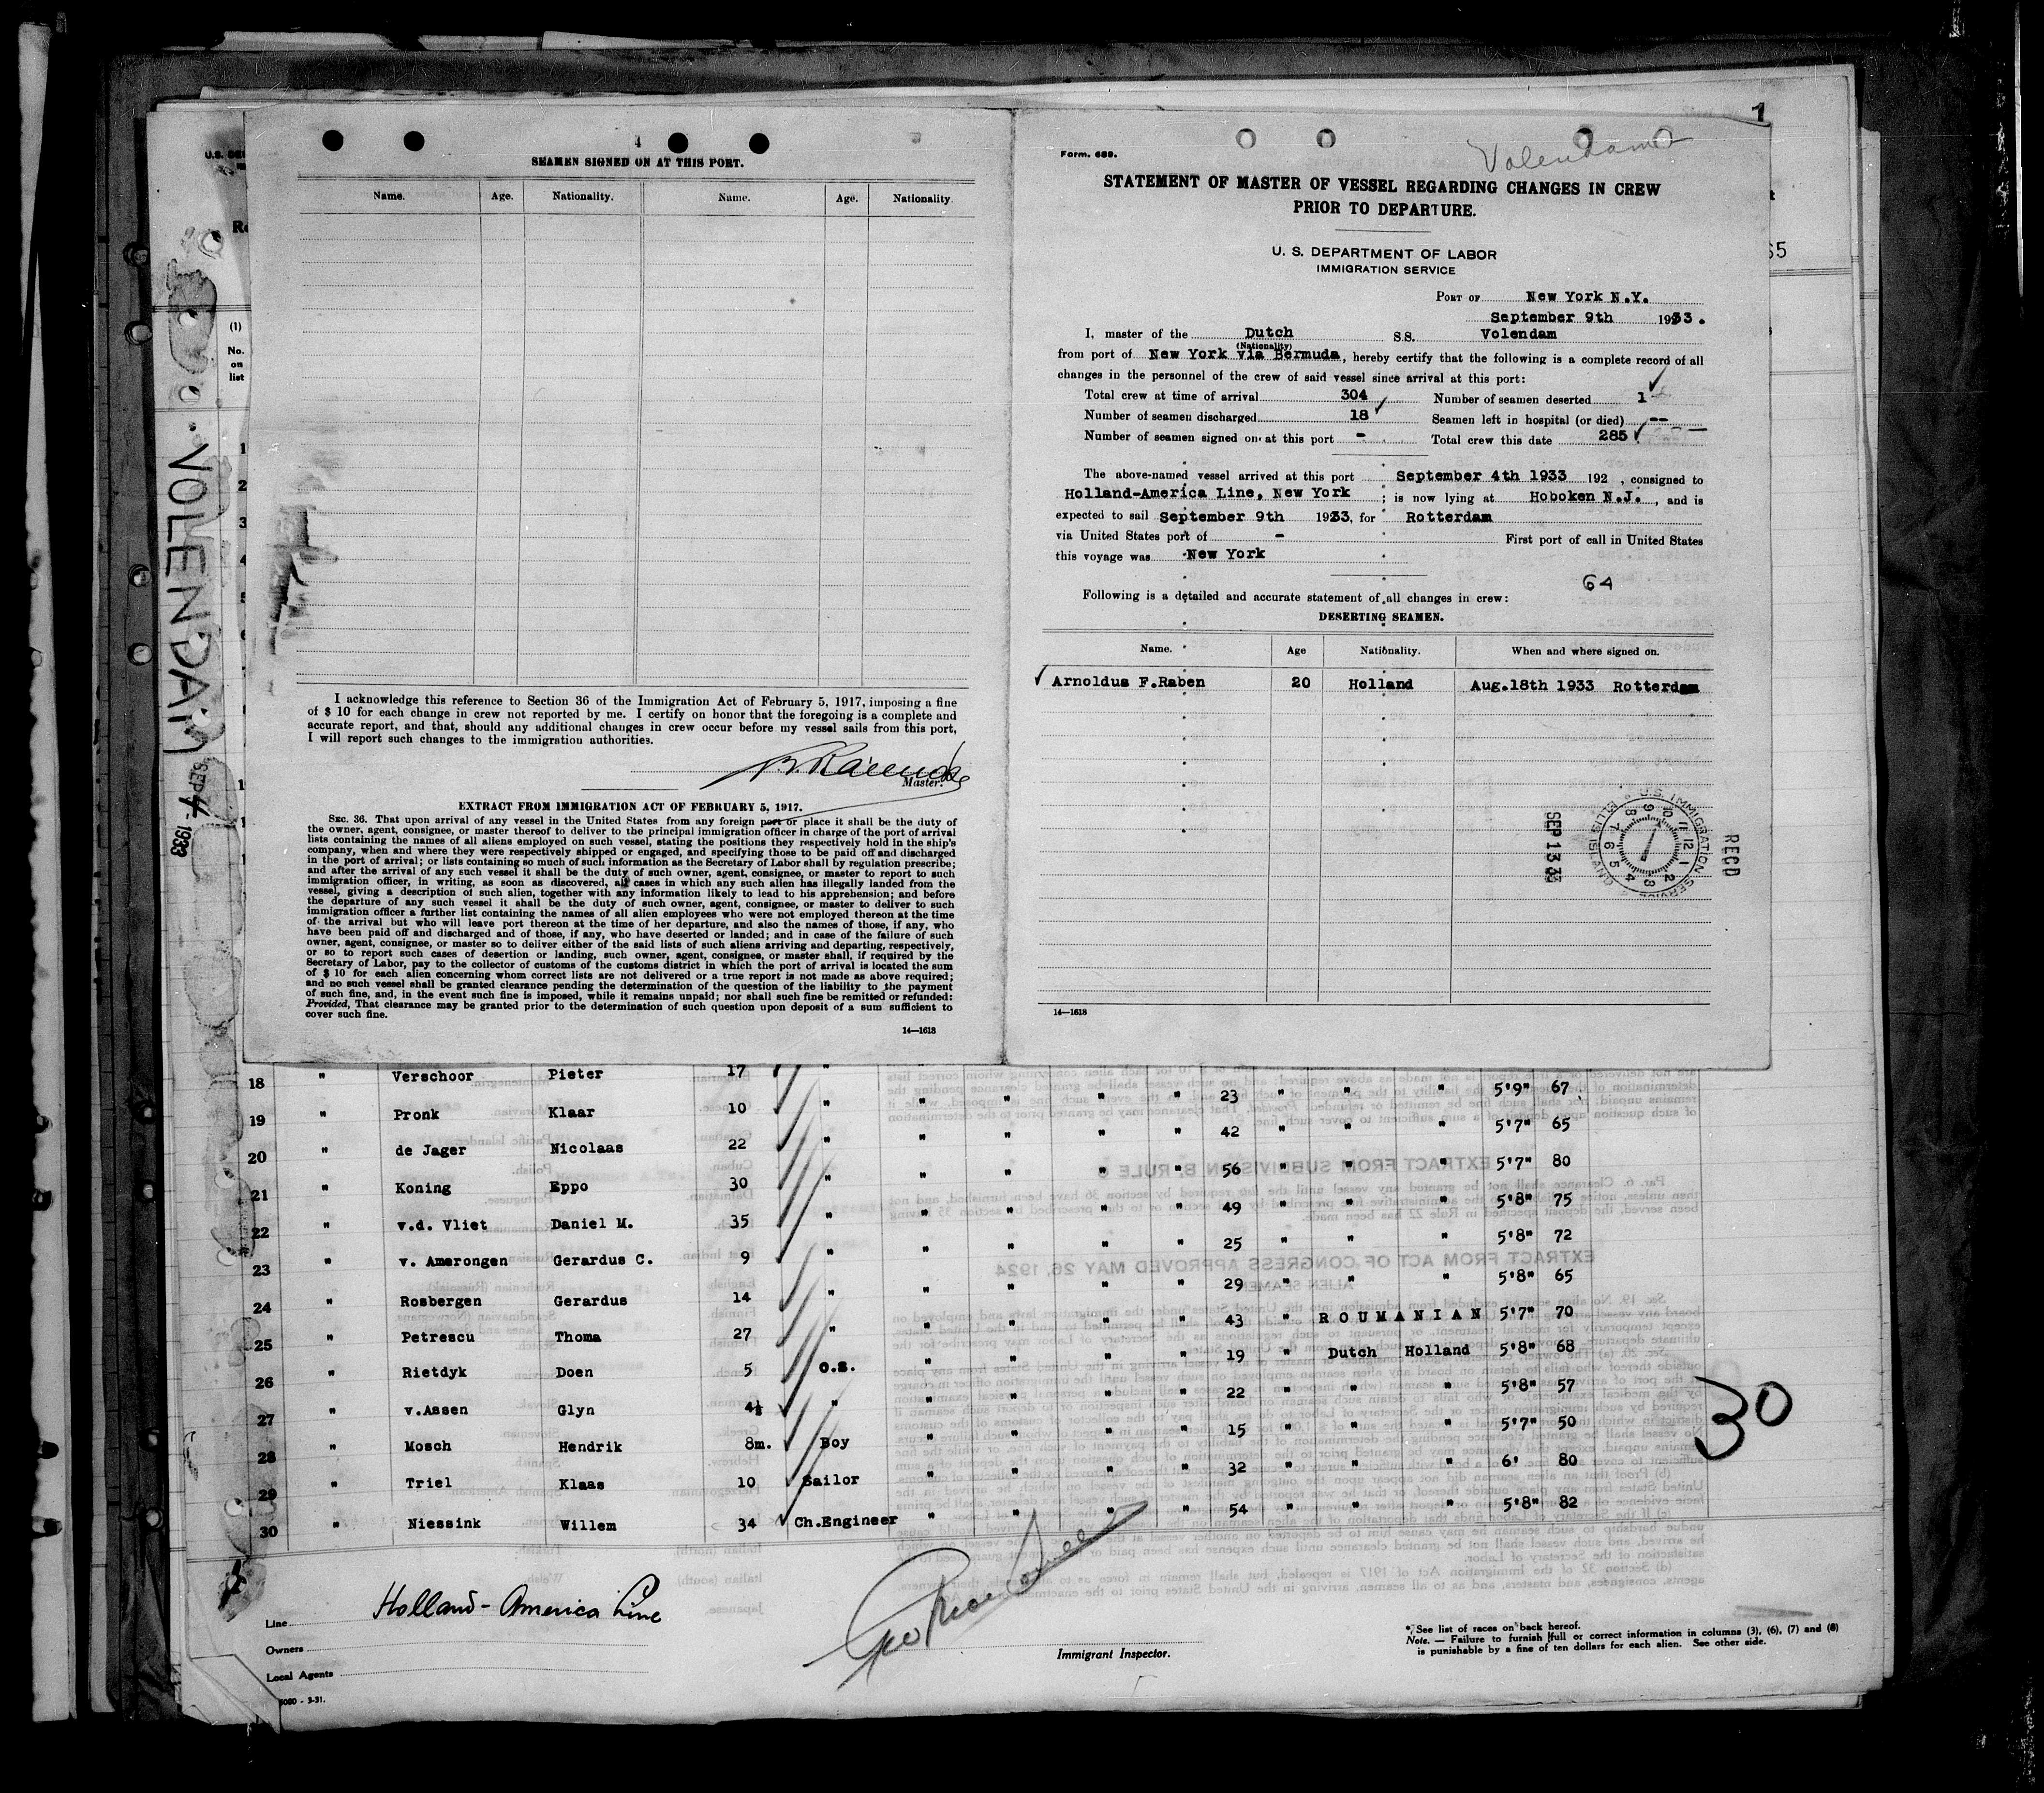 SEAMEN SIGNED ON AT THIS PORT.
Name. Age. Nationality. Name. Age. Nationality.
I acknowledge this reference to Section 36 of the Immigration Act of February 5, 1917, imposing a fine
of $ 10 for each change in crew not reported by me. I certify on honor that the foregoing is a complete and
accurate report, and that, should any additional changes in crew occur before my vessel sails from this port,
I will report such changes to the immigration authorities.
Master.
EXTRACT FROM IMMIGRATION ACT OF FEBRUARY 5, 1917.
SEC. 36. That upon arrival of any vessel in the United States from any foreign port or place it shall be the duty of
the owner, agent, consignee, or master thereof to deliver to the principal immigration officer in charge of the port of arrival
lists containing the names of all aliens employed on such vessel, stating the positions they respectively hold in the ship's
company, when and where they were respectively shipped or engaged, and specifying those to be paid off and discharged
in the port of arrival; or lists containing so much of such information as the Secretary of Labor shall by regulation prescribe;
and after the arrival of any such vessel it shall be the duty of such owner, agent, consignee, or master to report to such
immigration officer, in writing, as soon as discovered, all cases in which any such alien has illegally landed from the
vessel, giving a description of such alien, together with any information likely to lead to his apprehension; and before
the departure of any such vessel it shall be the duty of such owner, agent, consignee, or master to deliver to such
immigration officer a further list containing the names of all alien employees who were not employed thereon at the time
of the arrival but who will leave port thereon at the time of her departure, and also the names of those, if any, who
have been paid off and discharged and of those, if any, who have deserted or landed; and in case of the failure of such
owner, agent, consignee, or master so to deliver either of the said lists of such aliens arriving and departing, respectively,
or so to report such cases of desertion or landing, such owner, agent, consignee, or master shall, if required by the
Secretary of Labor, pay to the collector of customs of the customs district in which the port of arrival is located the sum
of $ 10 for each alien concerning whom correct lists are not delivered or a true report is not made as above required;
and no such vessel shall be granted clearance pending the determination of the question of the liability to the payment
of such fine, and, in the event such fine is imposed, while it remains unpaid; nor shall such fine be remitted or refunded:
Provided, That clearance may be granted prior to the determination of such question upon deposit of a sum sufficient to
cover such fine.
14—1618
1
Form. 689.
Volendam
STATEMENT OF MASTER OF VESSEL REGARDING CHANGES IN CREW
PRIOR TO DEPARTURE.
U. S. DEPARTMENT OF LABOR
IMMIGRATION SERVICE
PORT OF New York N.Y.
September 9th 1933.
I, master of the Dutch S.S. Volendam
(Nationality)
from port of New York via Bermuda, hereby certify that the following is a complete record of all
changes in the personnel of the crew of said vessel since arrival at this port:
Total crew at time of arrival 304 Number of seamen deserted 1
Number of seamen discharged 18 Seamen left in hospital (or died) --
Number of seamen signed on at this port - Total crew this date 285
The above-named vessel arrived at this port September 4th 1933 192 , consigned to
Holland-America Line, New York ; is now lying at Hoboken N.J. , and is
expected to sail September 9th 1933, for Rotterdam
via United States port of - First port of call in United States
this voyage was New York
64
Following is a detailed and accurate statement of all changes in crew:
DESERTING SEAMEN.
Name. Age Nationality. When and where signed on.
Arnoldus F.Raben 20 Holland Aug.18th 1933 Rotterdam
RECD
U.S. IMMIGRATION SERVICE ELLIS ISLAND
SEP 13 33
14—1618
VOLENDAM
SEP 4 - 1933
(1)
No.
on
list
65
18 " Verschoor Pieter 17 " " " " " 23 " " " 5'9" 67
19 " Pronk Klaar 10 " " " " " 42 " " " 5'7" 65
20 " de Jager Nicolaas 22 " " " " " 56 " " " 5'7" 80
21 " Koning Eppo 30 " " " " " 49 " " " 5'8" 75
22 " v.d. Vliet Daniel M. 35 " " " " " 25 " " " 5'8" 72
23 " v. Amerongen Gerardus C. 9 " " " " " 29 " " " 5'8" 65
24 " Rosbergen Gerardus 14 " " " " " 43 " ROUMANIAN 5'7" 70
25 " Petrescu Thoma 27 " " " " " 19 " Dutch Holland 5'8" 68
26 " Rietdyk Doen 5 O.S. " " " " 22 " " " 5'8" 57
27 " v.Assen Glyn 4½ " " " " " 15 " " " 5'7" 50
28 " Mosch Hendrik 8m. Boy " " " " 32 " " " 6' 80
29 " Triel Klaas 10 Sailor " " " " 54 " " " 5'8" 82
30 " Niessink Willem 34 Ch.Engineer
30
Line Holland-America Line
Owners
Local Agents
Immigrant Inspector.
*See list of races on back hereof.
Note. — Failure to furnish full or correct information in columns (3), (6), (7) and (8)
is punishable by a fine of ten dollars for each alien. See other side.